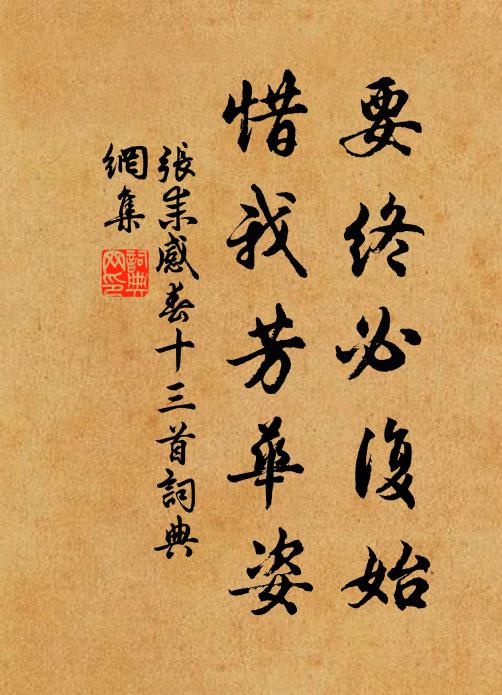 要終必復始
惜我芳華姿
張耒感春十三首詞典
網集
詞典
网印